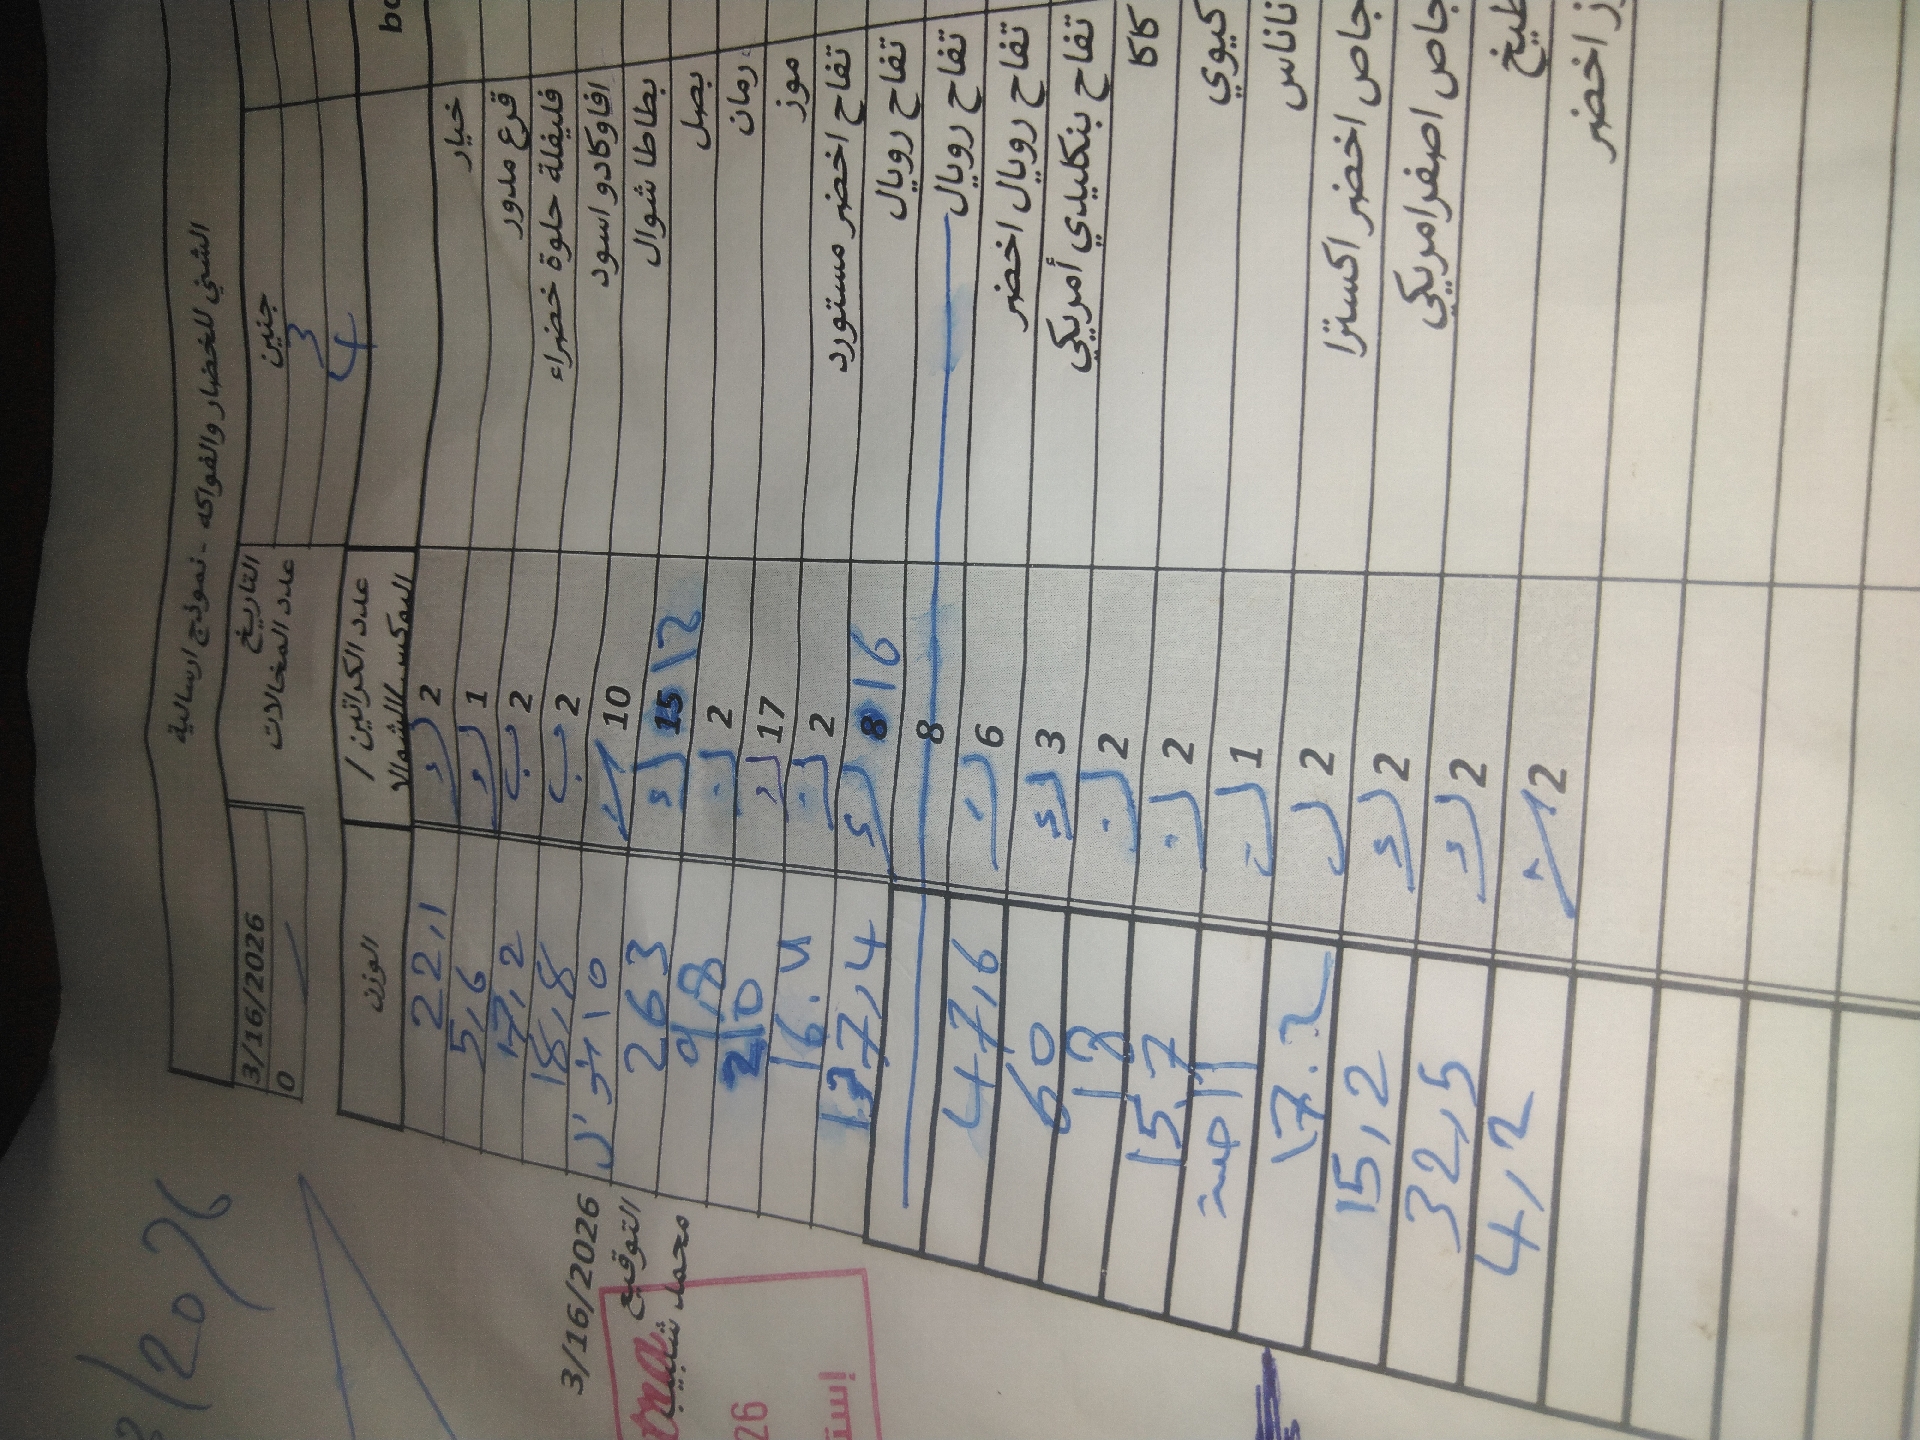 الشني للخضار والفواكه - نموذج ارسالية
جنين التاريخ 3/16/2026
3 عدد المخالات 0
4
عدد الكراتين / البوكس / الشوالا الوزن
خيار 2 22,1
قرع مدور 1 5,6
فليفلة حلوة خضراء 2 17,2
افاوكادو اسود 2 18,8
بطاطا شوال 10
بصل 15 12 263
رمان 2 9,8
موز 17 210
تفاح اخضر مستورد 2 16.4
تفاح رويال 8 16 137,4
تفاح رويال 8
تفاح رويال اخضر 6 47,6
تفاح بنكليدي أمريكي 3 60
كاكا 2 13
كيوي 2 15,7
ناناس 1 11 حبة
جاص اخضر اكسترا 2 17.2
جاص اصفر امريكي 2 15,2
طيخ 2 32,5
ز اخضر 2 4,2
3/16/2026
التوقيع
محمد شبيب